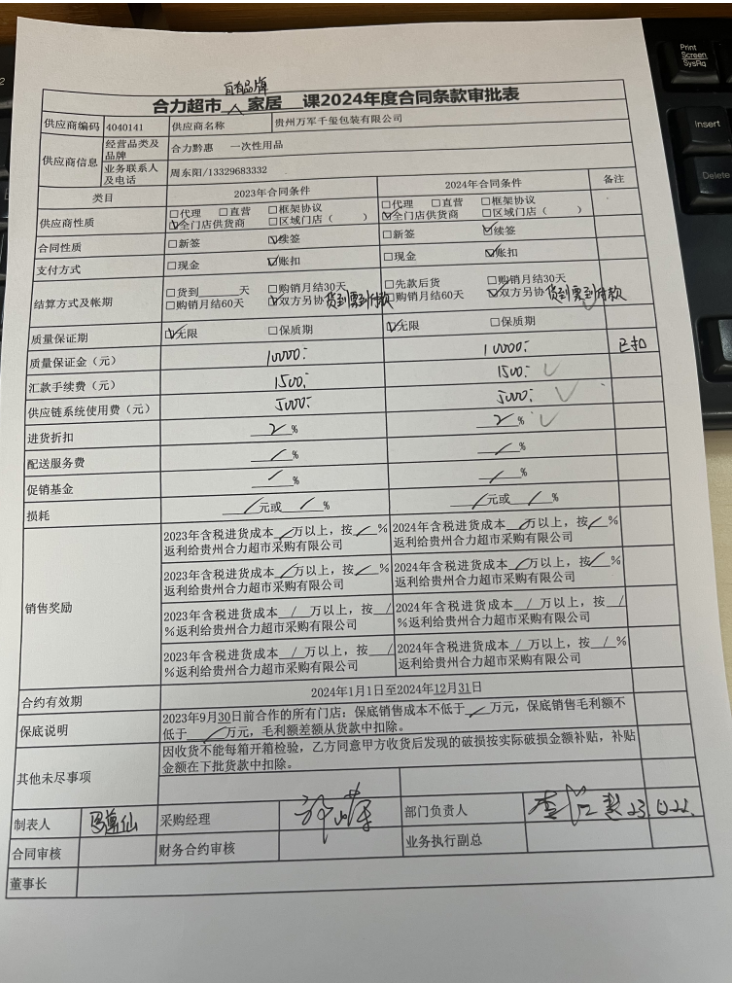 自有品牌
合力超市 人 家居 课2024年度合同条款审批表
供应商编码 4040141 供应商名称 贵州万军千玺包装有限公司
供应商信息 经营品类及品牌 合力黔惠 一次性用品
业务联系人及电话 周东阳/13329683332
类目 2023年合同条件 2024年合同条件 备注
供应商性质 □代理 □直营 □框架协议 ☑全门店供货商 □区域门店（ ） □代理 □直营 □框架协议 ☑全门店供货商 □区域门店（ ）
合同性质 □新签 ☑续签 □新签 ☑续签
支付方式 □现金 ☑账扣 □现金 ☑账扣
结算方式及帐期 □货到___天 □购销月结30天 □购销月结60天 ☑双方另协 货到票到付款 □先款后货 □购销月结30天 □购销月结60天 ☑双方另协 货到票到付款
质量保证期 ☑无限 □保质期 ☑无限 □保质期
质量保证金（元） 10000: 10000: 已扣
汇款手续费（元） 1500: 1500: ✓
供应链系统使用费（元） 5000: 5000: ✓
进货折扣 2 % 2 % ✓
配送服务费 / % / %
促销基金 / % / %
损耗 / 元或 / % / 元或 / %
销售奖励
2023年含税进货成本 / 万以上，按 / %返利给贵州合力超市采购有限公司 2024年含税进货成本 / 万以上，按 / %返利给贵州合力超市采购有限公司
2023年含税进货成本 / 万以上，按 / %返利给贵州合力超市采购有限公司 2024年含税进货成本 / 万以上，按 / %返利给贵州合力超市采购有限公司
2023年含税进货成本 / 万以上，按 / %返利给贵州合力超市采购有限公司 2024年含税进货成本 / 万以上，按 / %返利给贵州合力超市采购有限公司
2023年含税进货成本 / 万以上，按 / %返利给贵州合力超市采购有限公司 2024年含税进货成本 / 万以上，按 / %返利给贵州合力超市采购有限公司
合约有效期 2024年1月1日至2024年12月31日
保底说明 2023年9月30日前合作的所有门店：保底销售成本不低于 / 万元，保底销售毛利额不
低于 / 万元，毛利额差额从货款中扣除。
其他未尽事项 因收货不能每箱开箱检验，乙方同意甲方收货后发现的破损按实际破损金额补贴，补贴
金额在下批货款中扣除。
制表人 采购经理 部门负责人
合同审核 财务合约审核 业务执行副总
董事长
Print
Screen
SysRq
Insert
Delete